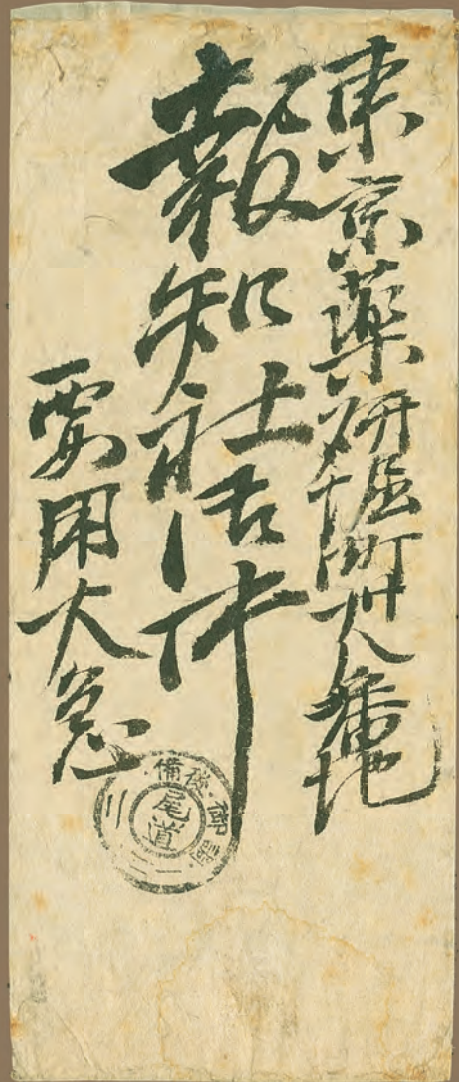 東京薬研堀町卅八番地
報知社御中
要用大急
備後
尾道